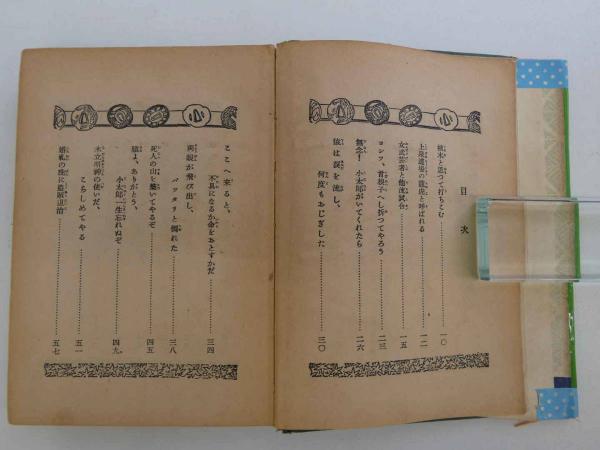 目次
植木と思つて打ちこむ……一〇
上泉道場の龍虎と呼ばれる……一二
女武芸者と他流試合……一五
コンツ、首根子へし折つてやろう……二三
無念！小太郎がいてくれたら……二六
彼は涙を流し、
何度もおじぎした……三〇
ここへ来ると、
不具になるか命をおとすかだ……三四
両親が飛び出し、
バッタリと倒れた……三八
死人の山を築いてやるぞ……四五
猿よ、ありがとう、
小太郎一生忘れぬぞ……四九
木立明神の使いだ、
こらしめてやる……五一
婚礼の夜に道場退治……五七